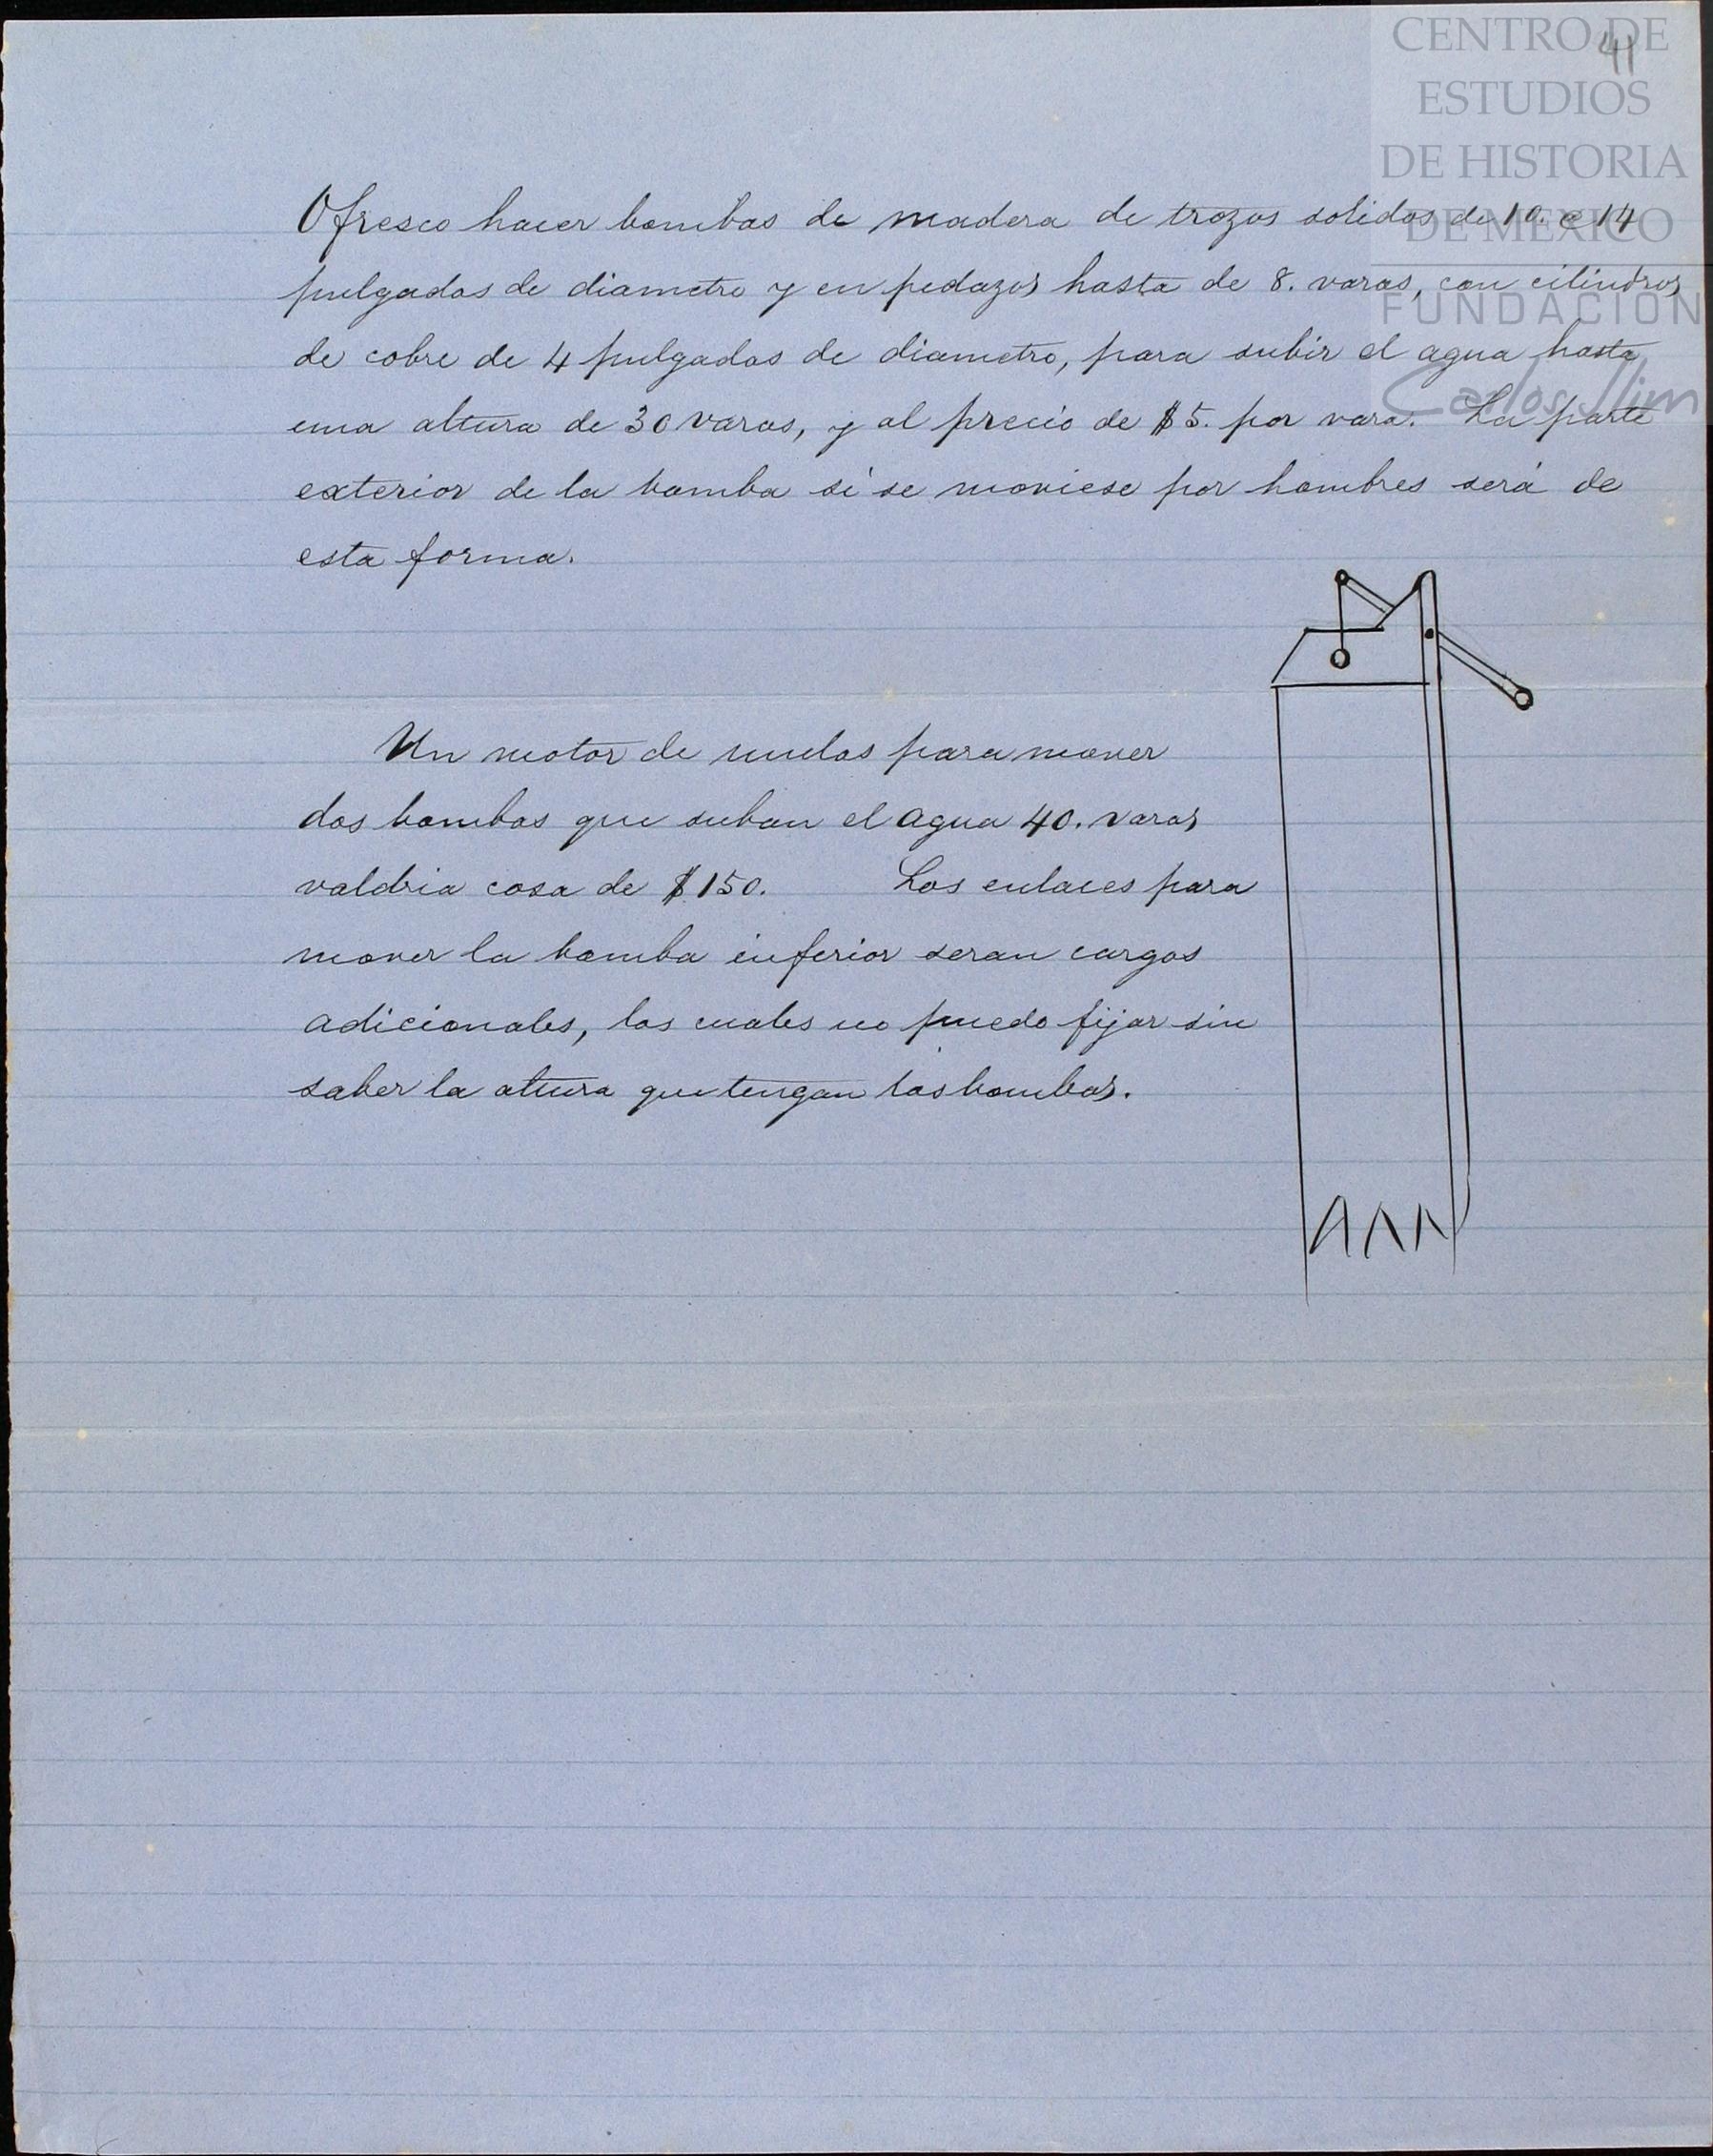 CENTRO DE
41
ESTUDIOS
DE HISTORIA
DE MÉXICO
FUNDACIÓN
Carlos Slim
Ofresco hacer bombas de madera de trozos solidos de 10. a 14
pulgadas de diametro y en pedazos hasta de 8. varas, con cilindros
de cobre de 4 pulgadas de diametro, para subir el agua hasta
una altura de 30 varas, y al precio de $5. por vara. La parte
exterior de la bomba si se moviese por hombres será de
esta forma.
Un motor de mulas para mover
dos bombas que suban el agua 40. varas
valdria cosa de $150. Los enlaces para
mover la bomba inferior seran cargos
adicionales, los cuales no puedo fijar sin
saber la altura que tengan las bombas.